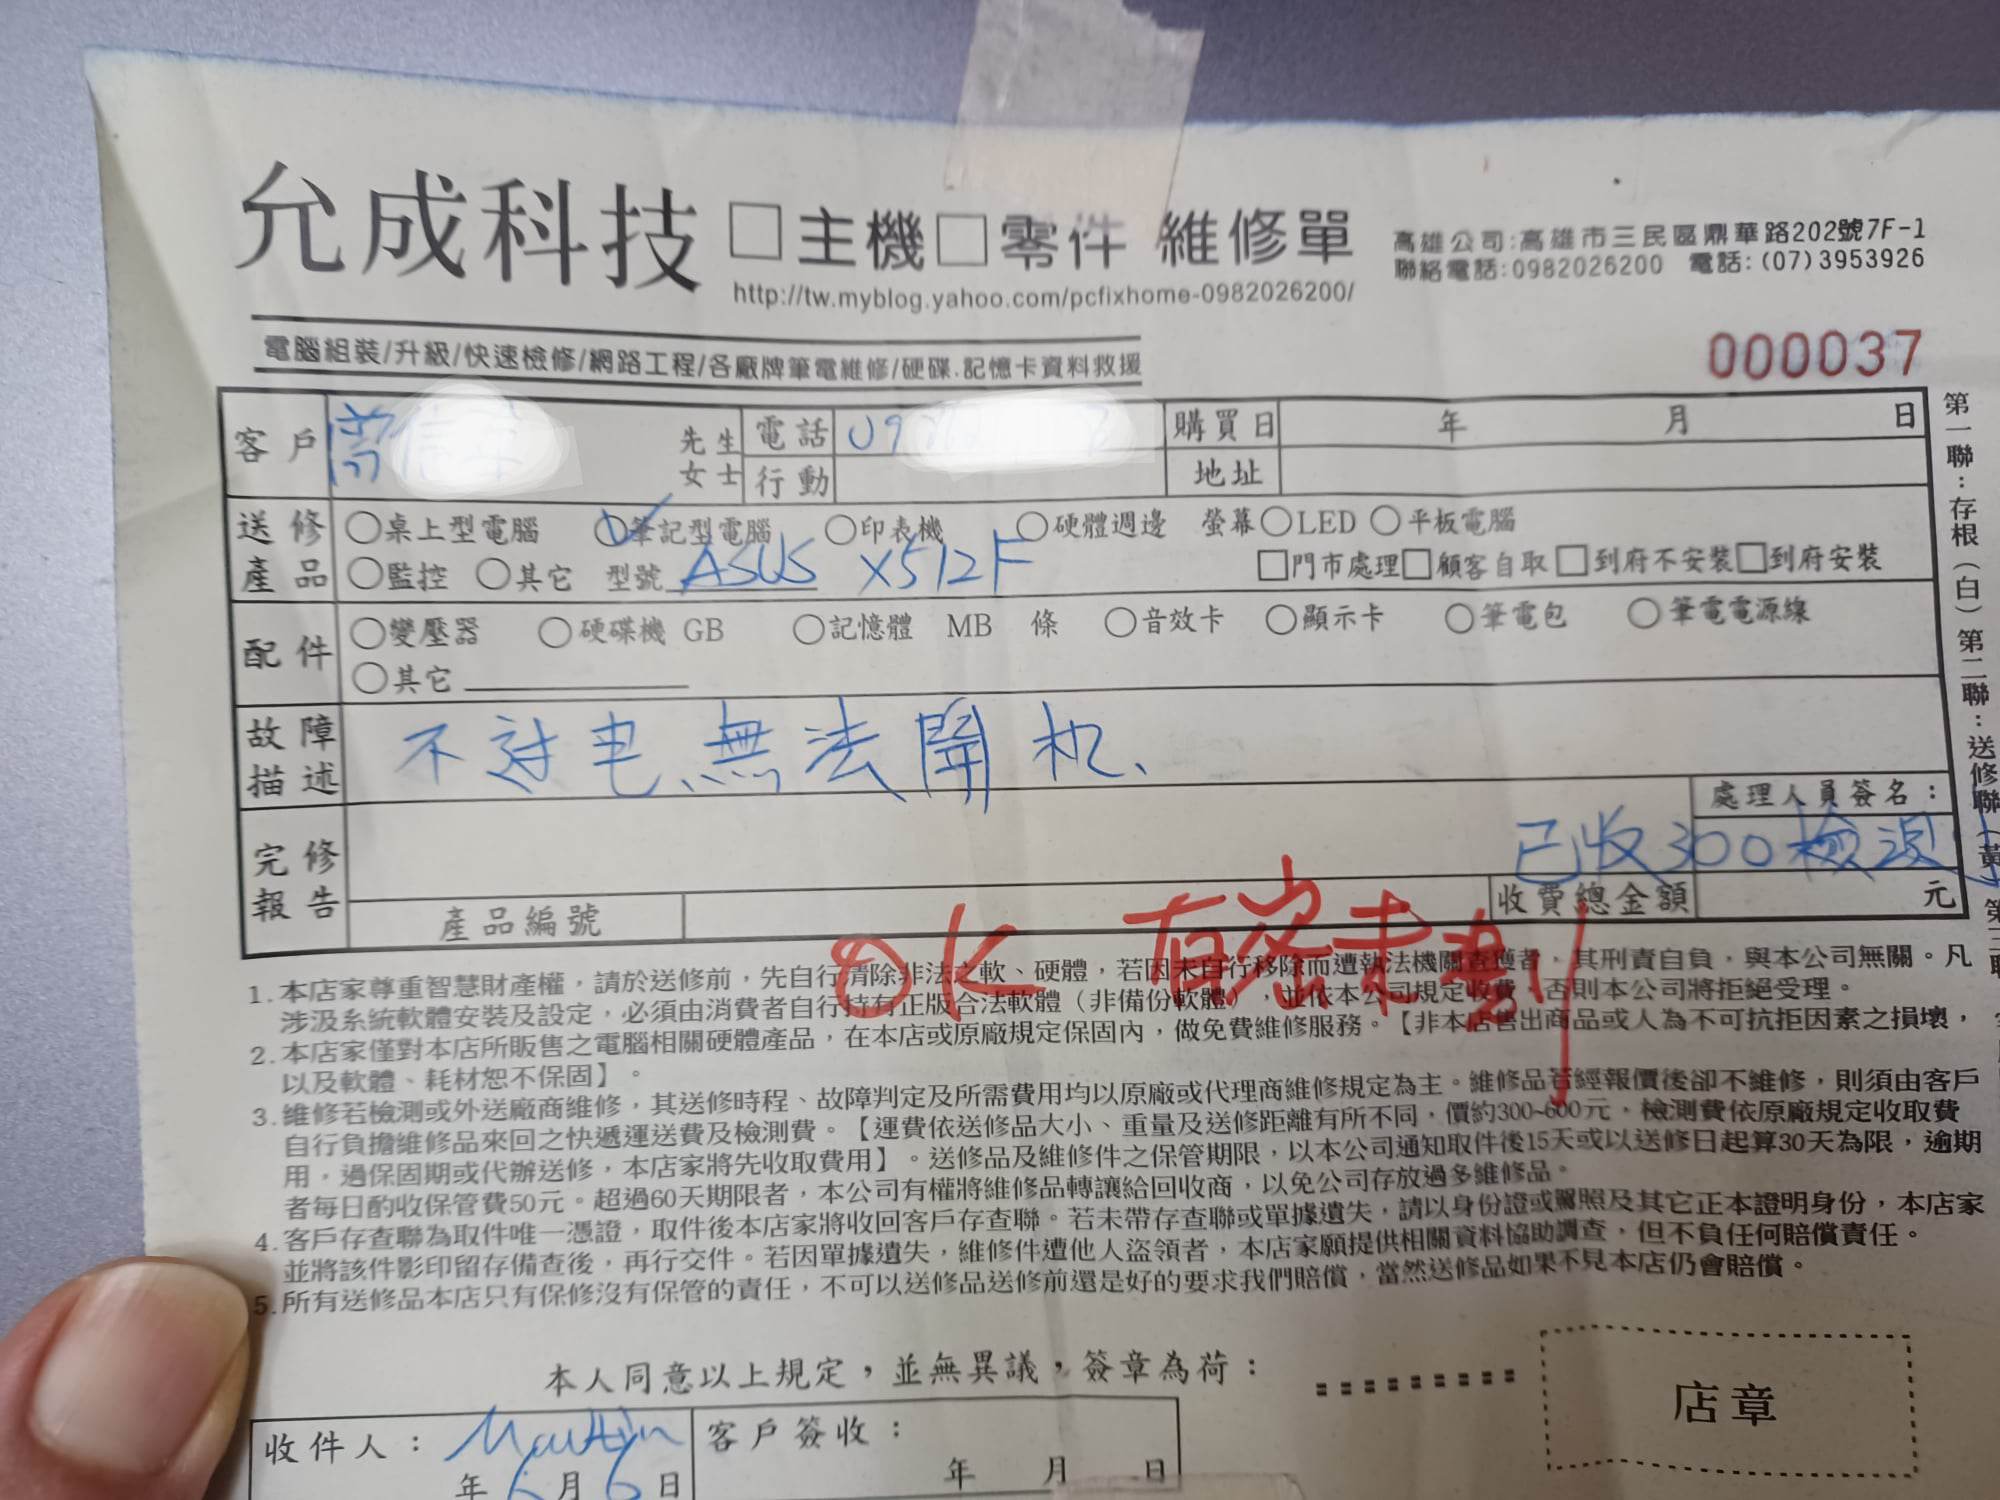 允成科技 □主機□零件 維修單
http://tw.myblog.yahoo.com/pcfixhome-0982026200/
高雄公司:高雄市三民區鼎華路202號7F-1
聯絡電話:0982026200 電話:(07)3953926
電腦組裝/升級/快速檢修/網路工程/各廠牌筆電維修/硬碟.記憶卡資料救援
000037
客戶 先生 女士 電話 09 行動 購買日 年 月 日 地址
送修產品 ○桌上型電腦 ○筆記型電腦 ○印表機 ○硬體週邊 螢幕○LED ○平板電腦
○監控 ○其它 型號 ASUS X512F □門市處理□顧客自取□到府不安裝□到府安裝
配件 ○變壓器 ○硬碟機 GB ○記憶體 MB 條 ○音效卡 ○顯示卡 ○筆電包 ○筆電電源線
○其它
故障描述 不过电、無法開机、
處理人員簽名:
完修報告 已收300檢測
產品編號 收費總金額 元
OK 有密未測
1.本店家尊重智慧財產權，請於送修前，先自行清除非法之軟、硬體，若因未自行移除而遭執法機關查獲者，其刑責自負，與本公司無關。凡
涉及系統軟體安裝及設定，必須由消費者自行持有正版合法軟體（非備份軟體），並依本公司規定收費，否則本公司將拒絕受理。
2.本店家僅對本店所販售之電腦相關硬體產品，在本店或原廠規定保固內，做免費維修服務。【非本店售出商品或人為不可抗拒因素之損壞，
以及軟體、耗材恕不保固】。
3.維修若檢測或外送廠商維修，其送修時程、故障判定及所需費用均以原廠或代理商維修規定為主。維修品若經報價後卻不維修，則須由客戶
自行負擔維修品來回之快遞運送費及檢測費。【運費依送修品大小、重量及送修距離有所不同，價約300~600元，檢測費依原廠規定收取費
用，過保固期或代辦送修，本店家將先收取費用】。送修品及維修件之保管期限，以本公司通知取件後15天或以送修日起算30天為限，逾期
者每日酌收保管費50元。超過60天期限者，本公司有權將維修品轉讓給回收商，以免公司存放過多維修品。
4.客戶存查聯為取件唯一憑證，取件後本店家將收回客戶存查聯。若未帶存查聯或單據遺失，請以身份證或駕照及其它正本證明身份，本店家
並將該件影印留存備查後，再行交件。若因單據遺失，維修件遭他人盜領者，本店家願提供相關資料協助調查，但不負任何賠償責任。
5.所有送修品本店只有保修沒有保管的責任，不可以送修品送修前還是好的要求我們賠償，當然送修品如果不見本店仍會賠償。
本人同意以上規定，並無異議，簽章為荷：
店章
收件人： 客戶簽收：
年6月6日 年 月 日
第一聯：存根（白）第二聯：送修聯（黃）